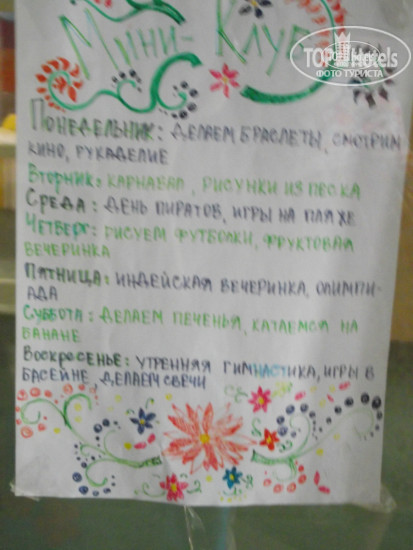 TOP Hotels
ФОТО ТУРИСТА
Мини-Клуб
Понедельник: делаем браслеты, смотрим
кино, рукаделие
Вторник: карнавал, рисунки из песка
Среда: день пиратов, игры на пляже
Четверг: рисуем футболки, фруктовая
вечеринка
Пятница: индейская вечеринка, олимпи-
ада
Суббота: делаем печенья, катаемся на
банане
Воскресенье: утренняя гимнастика, игры в
басейне делаем свечи